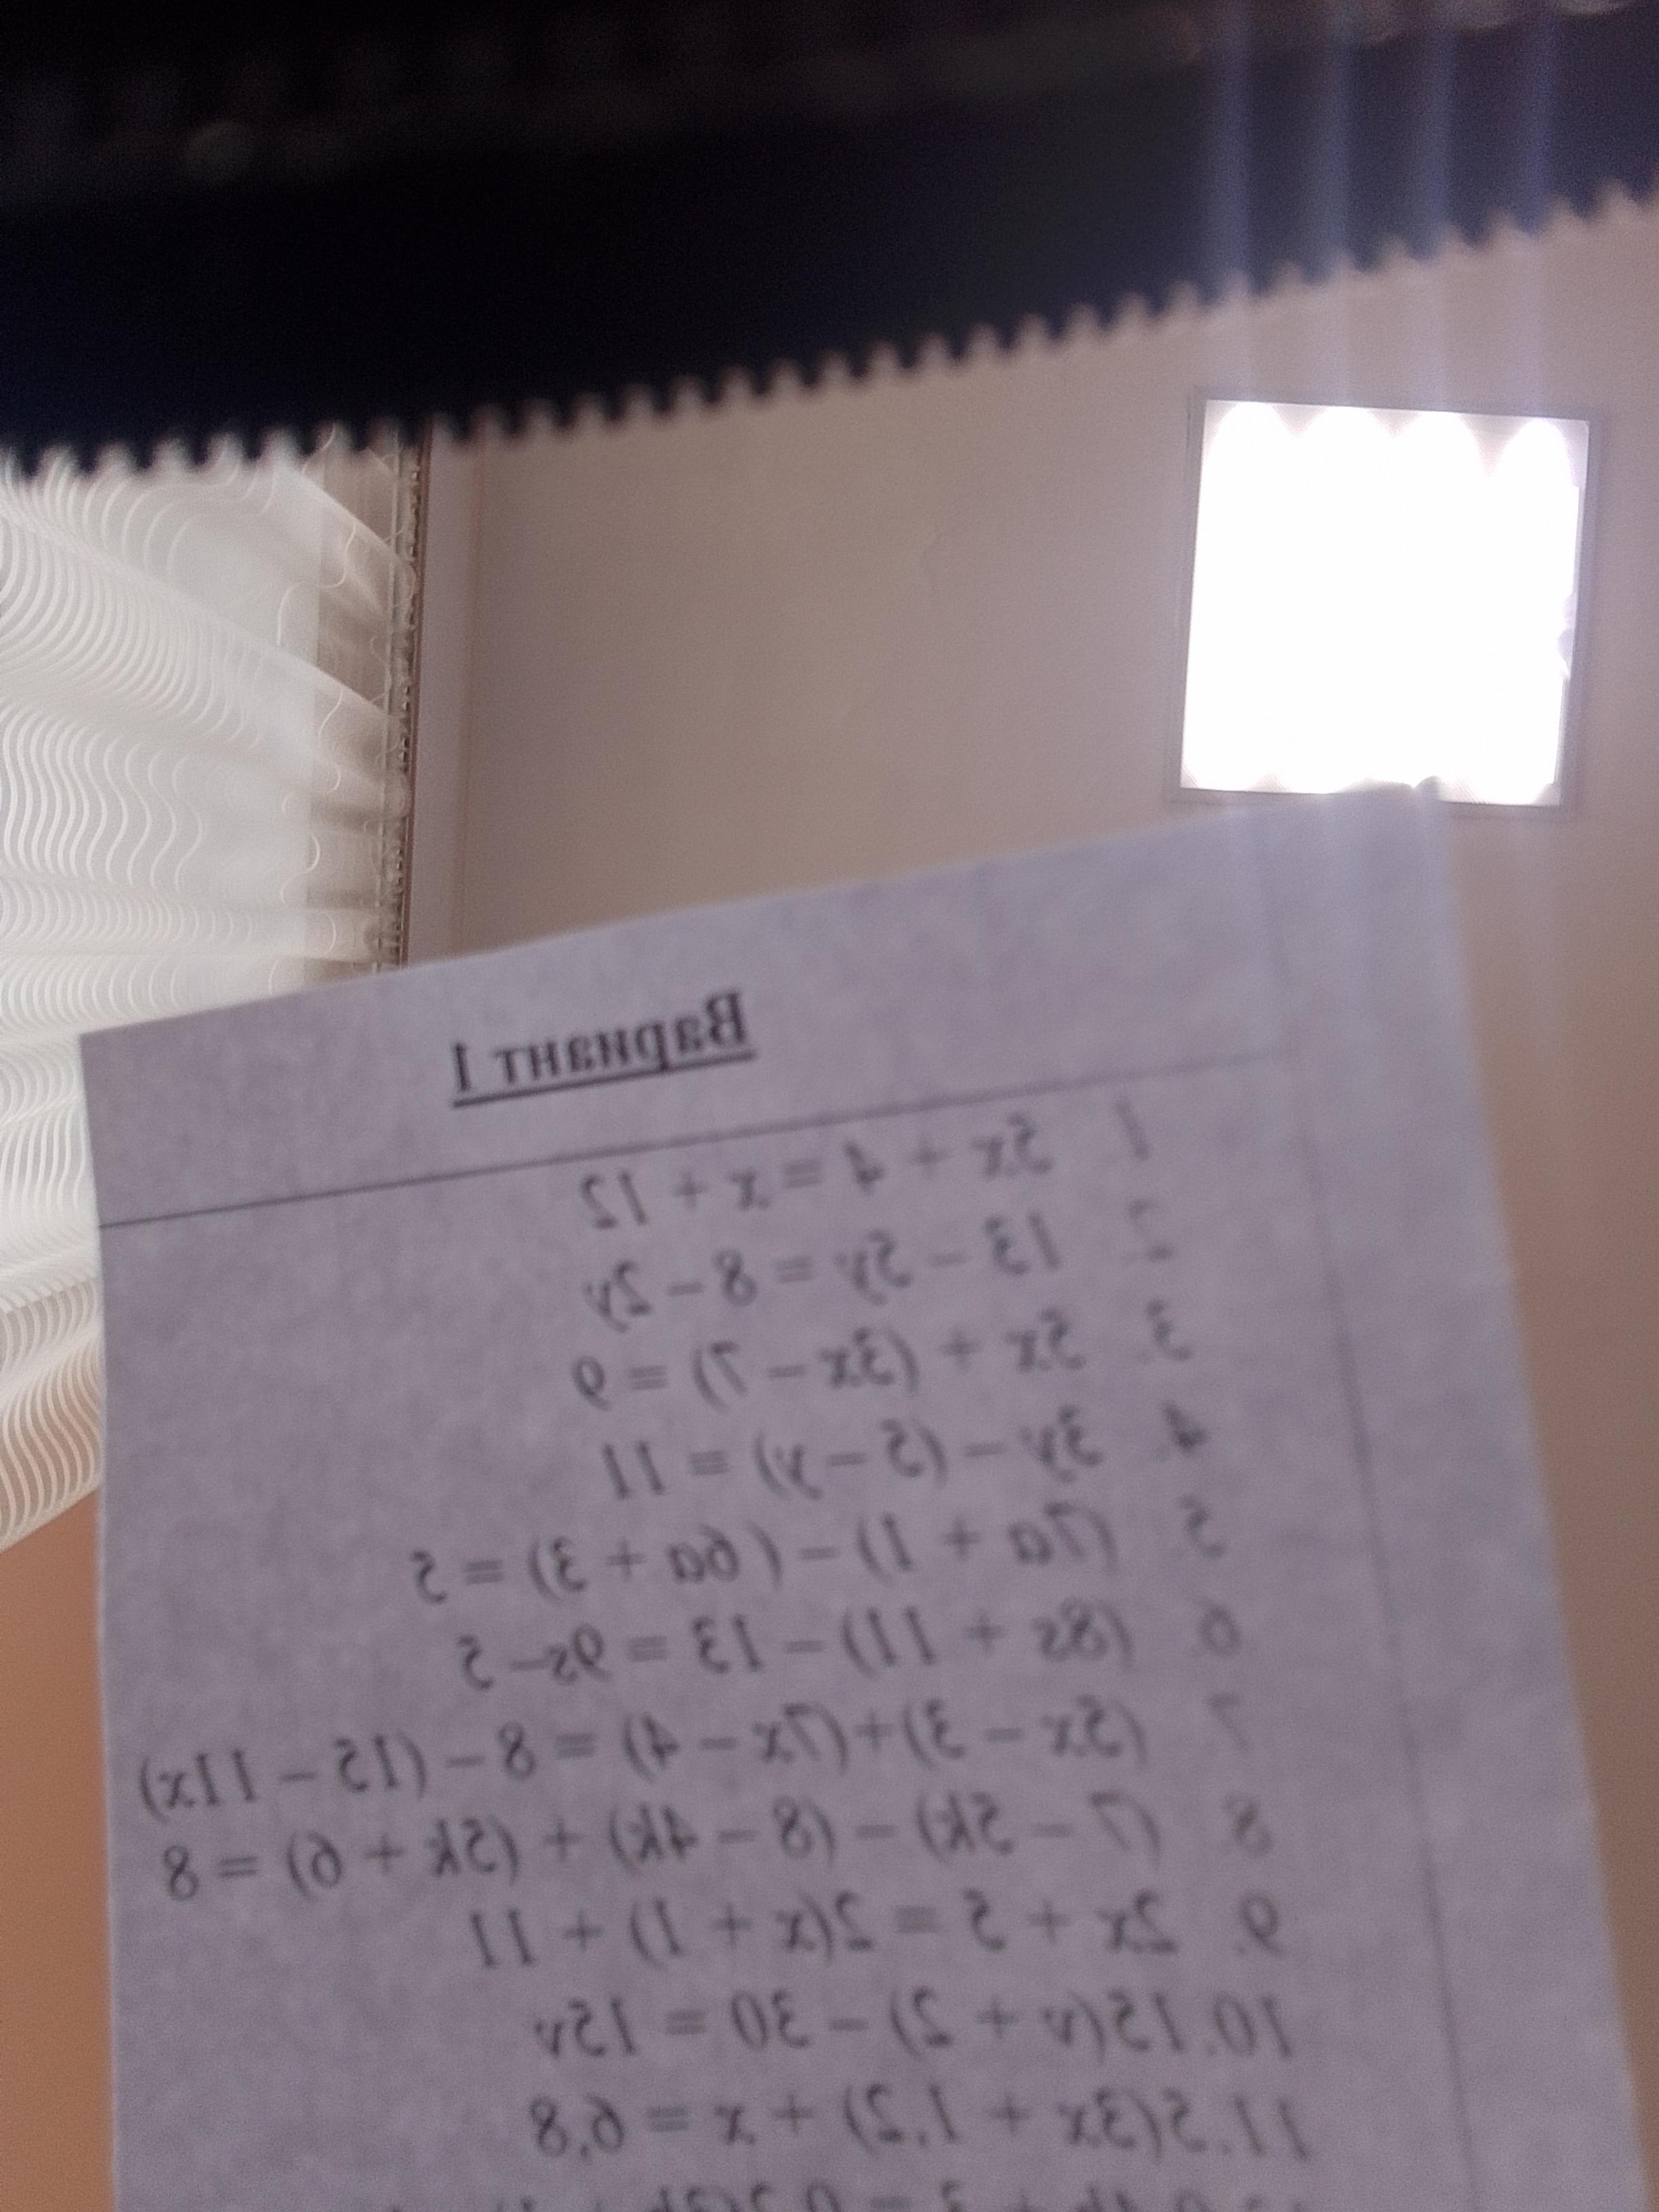 Вариант 1
1. 5x + 4 = x + 12
2. 13 – 5y = 8 – 2y
3. 5x + (3x – 7) = 9
4. 3y – (5 – y) = 11
5. (7a + 1) – (6a + 3) = 5
6. (8s + 11) – 13 = 9s – 5
7. (5x – 3)+(7x – 4) = 8 – (15 – 11x)
8. (7 – 5k) – (8 – 4k) + (5k + 6) = 8
9. 2x + 5 = 2(x + 1) + 11
10. 15(v + 2) – 30 = 15v
11. 5(3x + 1,2) + x = 6,8